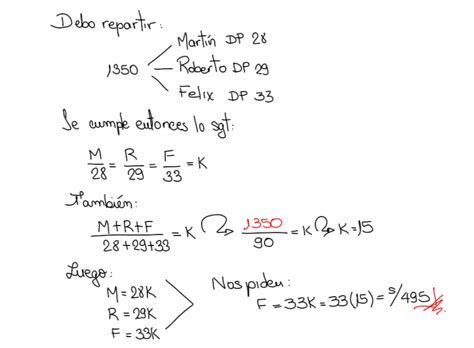 Debo repartir:
1350
Martín DP 28
Roberto DP 29
Felix DP 33
Se cumple entonces lo sgt:
M/28 = R/29 = F/33 = K
También:
M+R+F/28+29+33 = K 1350/90 = K K=15
Luego:
M = 28K
R = 29K
F = 33K
Nos piden:
F = 33K = 33(15) = s/495